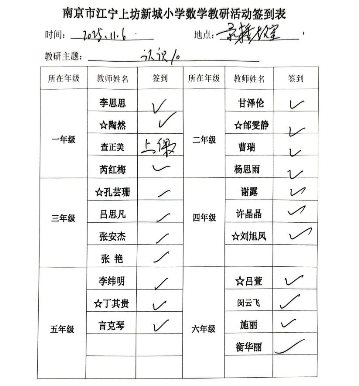 南京市江宁上坊新城小学数学教研活动签到表
时间： 2025.11.6 地点：
教研主题： 认识10
所在年级 教师姓名 签到 所在年级 教师姓名 签到
一年级 李思思 ✓ 二年级 甘泽伦 ✓
☆陶然 ✓ ☆邰雯静 ✓
查正美 上课 曹瑞 ✓
芮红梅 ✓ 杨思雨 ✓
三年级 ☆孔芸珊 ✓ 四年级 谢露 ✓
吕思凡 ✓ 许晶晶 ✓
张安杰 ✓ ☆刘旭凤 ✓
张艳 ✓
五年级 李纬明 ✓ 六年级 ☆吕萱 ✓
☆丁其贵 ✓ 闵云飞 ✓
言克琴 ✓ 施丽 ✓
衡华丽 ✓